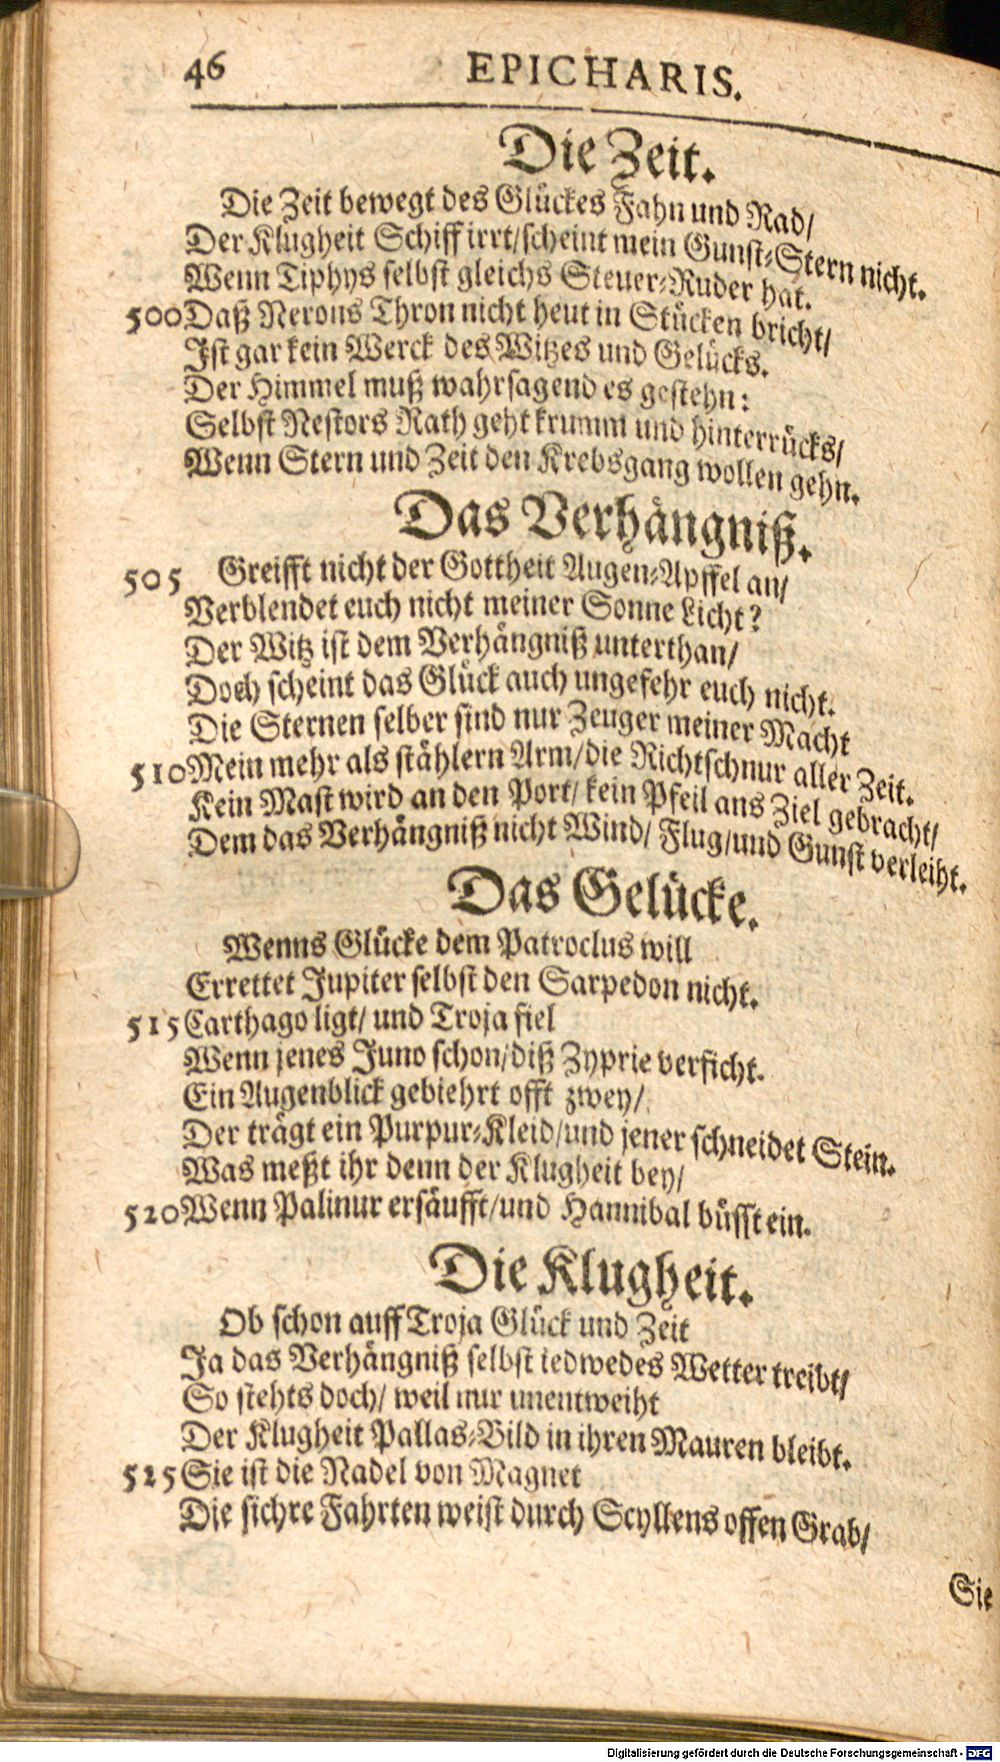 46 EPICHARIS.
Die Zeit.
Die Zeit bewegt des Glückes Fahn und Rad/
Der Klugheit Schiff irrt/scheint mein Gunst-Stern nicht.
Wenn Tiphys selbst gleichs Steuer-Ruder hat.
500 Daß Nerons Thron nicht heut in Stücken bricht/
Ist gar kein Werck des Witzes und Gelücks.
Der Himmel muß wahrsagend es gestehn:
Selbst Nestors Rath geht krumm und hinterrücks/
Wenn Stern und Zeit den Krebsgang wollen gehn.
Das Verhängniß.
505 Greifft nicht der Gottheit Augen-Apffel an/
Verblendet euch nicht meiner Sonne Licht?
Der Witz ist dem Verhängniß unterthan/
Doch scheint das Glück auch ungefehr euch nicht.
Die Sternen selber sind nur Zeuger meiner Macht
510 Mein mehr als stählern Arm/die Richtschnur aller Zeit.
Kein Mast wird an den Port/kein Pfeil ans Ziel gebracht/
Dem das Verhängniß nicht Wind/Flug/und Gunst verleiht.
Das Gelücke.
Wenns Glücke dem Patroclus will
Errettet Jupiter selbst den Sarpedon nicht.
515 Carthago ligt/ und Troja fiel
Wenn jenes Juno schon/diß Zyprie verficht.
Ein Augenblick gebiehrt offt zwey/
Der trägt ein Purpur-Kleid/und jener schneidet Stein.
Was meßt ihr denn der Klugheit bey/
520 Wenn Palinur ersäufft/und Hannibal büsst ein.
Die Klugheit.
Ob schon auff Troja Glück und Zeit
Ja das Verhängniß selbst iedwedes Wetter treibt/
So stehts doch/ weil nur unentweiht
Der Klugheit Pallas-Bild in ihren Mauren bleibt.
525 Sie ist die Nadel von Magnet
Die sichre Fahrten weist durch Scyllens offen Grab/
Sie
Digitalisierung gefördert durch die Deutsche Forschungsgemeinschaft - DFG